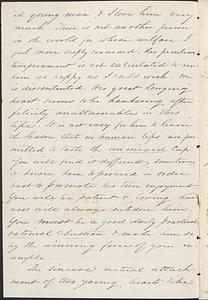 ed young man & I love him very
much. There is not another person
in the world for whose welfare I
feel more deeply concerned. His peculiar
temperament is not calculated to make
him as happy as I could wish. He
is discontented. His great longing
heart seems to be hankering after
felicity unattainable in this
life. It is not easy for him to learn
the lesson that no human lips are per
mitted to taste the unmixed cup.
You will find it difficult, sometimes
to know how to proceed in order
best to promote his true enjoyment
You will be patient & loving, that
will always subdue him.
You must be a good daily practical
rational Christian & make him so
by the winning force of your ex
ample.
The sincere mutual attach
ment of two young, hearts like